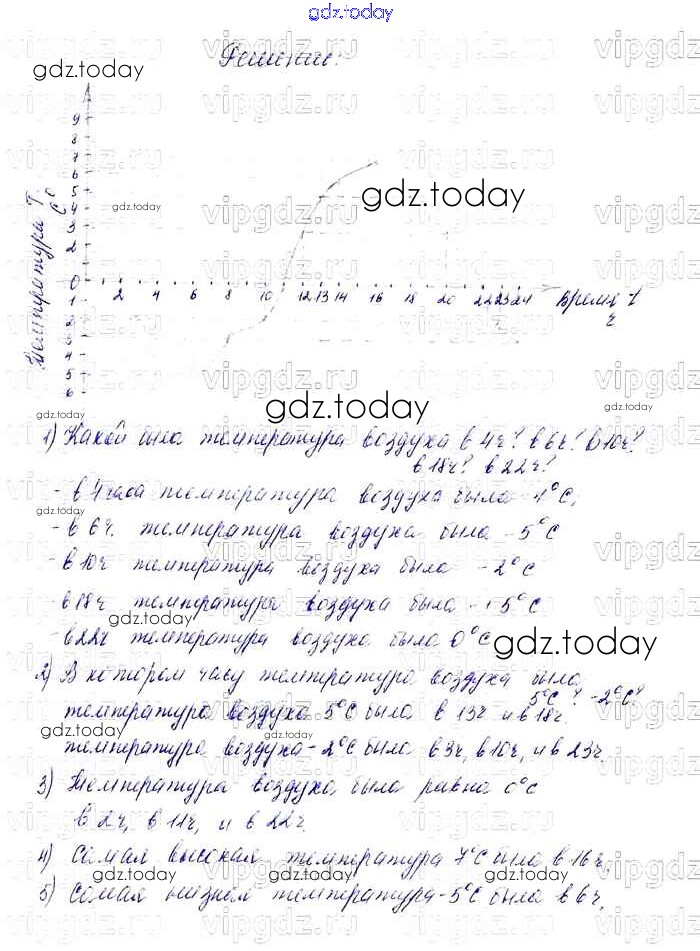 gdz.today
Решение:
gdz.today
9
8
7
6
5
4
3
2
0
1
2
3
4
5
6
Температура T, °C
2 4 6 8 10 12 13 14 16 18 20 22 23 24 Время t, ч
gdz.today
gdz.today
gdz.today
gdz.today
gdz.today
1) Какой была температура воздуха в 4ч? в 6ч? в 10ч?
в 18ч? в 22ч?
- в 4 часа температура воздуха была °C,
gdz.today
- в 6ч. температура воздуха была -5°C
- в 10ч температура воздуха была -2°C
- в 18ч температура воздуха была +5°C
gdz.today
- в 22ч температура воздуха была 0°C
gdz.today
2) В котором часу температура воздуха была
5°C? -2°C?
температура воздуха 5°C была в 13ч и в 18ч.
gdz.today
температура воздуха -2°C была в 3ч, в 10ч, и в 23ч.
3) Температура воздуха была равна 0°C
в 2ч, в 11ч, и в 22ч.
4) Самая высокая температура 7°C была в 16ч,
gdz.today
gdz.today
5) Самая низкая температура -5°C была в 6ч,
vipgdz.ru